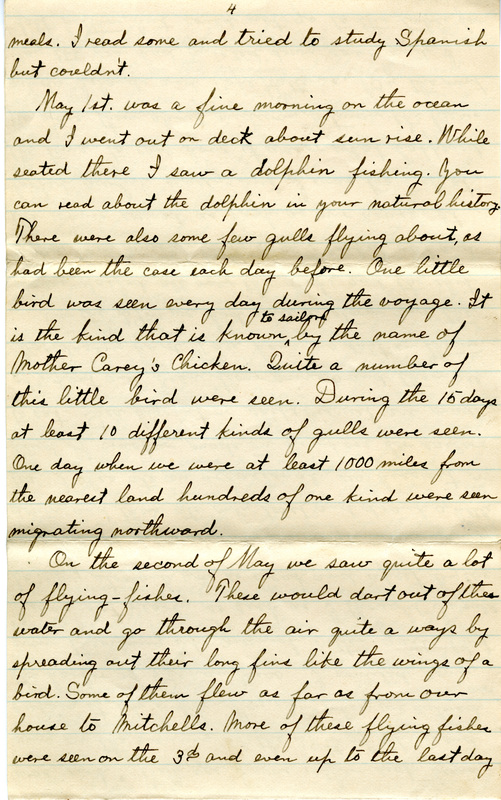 4
meals. I read some and tried to study Spanish
but couldn't.
May 1st. was a fine morning on the ocean
and I went out on deck about sun rise. While
seated there I saw a dolphin fishing. You
can read about the dolphin in your natural history.
There were also some few gulls flying about, as
had been the case each day before. One little
bird was seen every day during the voyage. It
is the kind that is known to sailors by the name of
Mother Carey's Chicken. Quite a number of
this little bird were seen. During the 15 days
at least 10 different kinds of gulls were seen.
One day when we were at least 1000 miles from
the nearest land hundreds of one kind were seen
migrating northward.
On the second of May we saw quite a lot
of flying-fishes. These would dart out of the
water and go through the air quite a ways by
spreading out their long fins like the wings of a
bird. Some of them flew as far as from our
house to Mitchells. More of these flying fishes
were seen on the 3d and even up to the last day